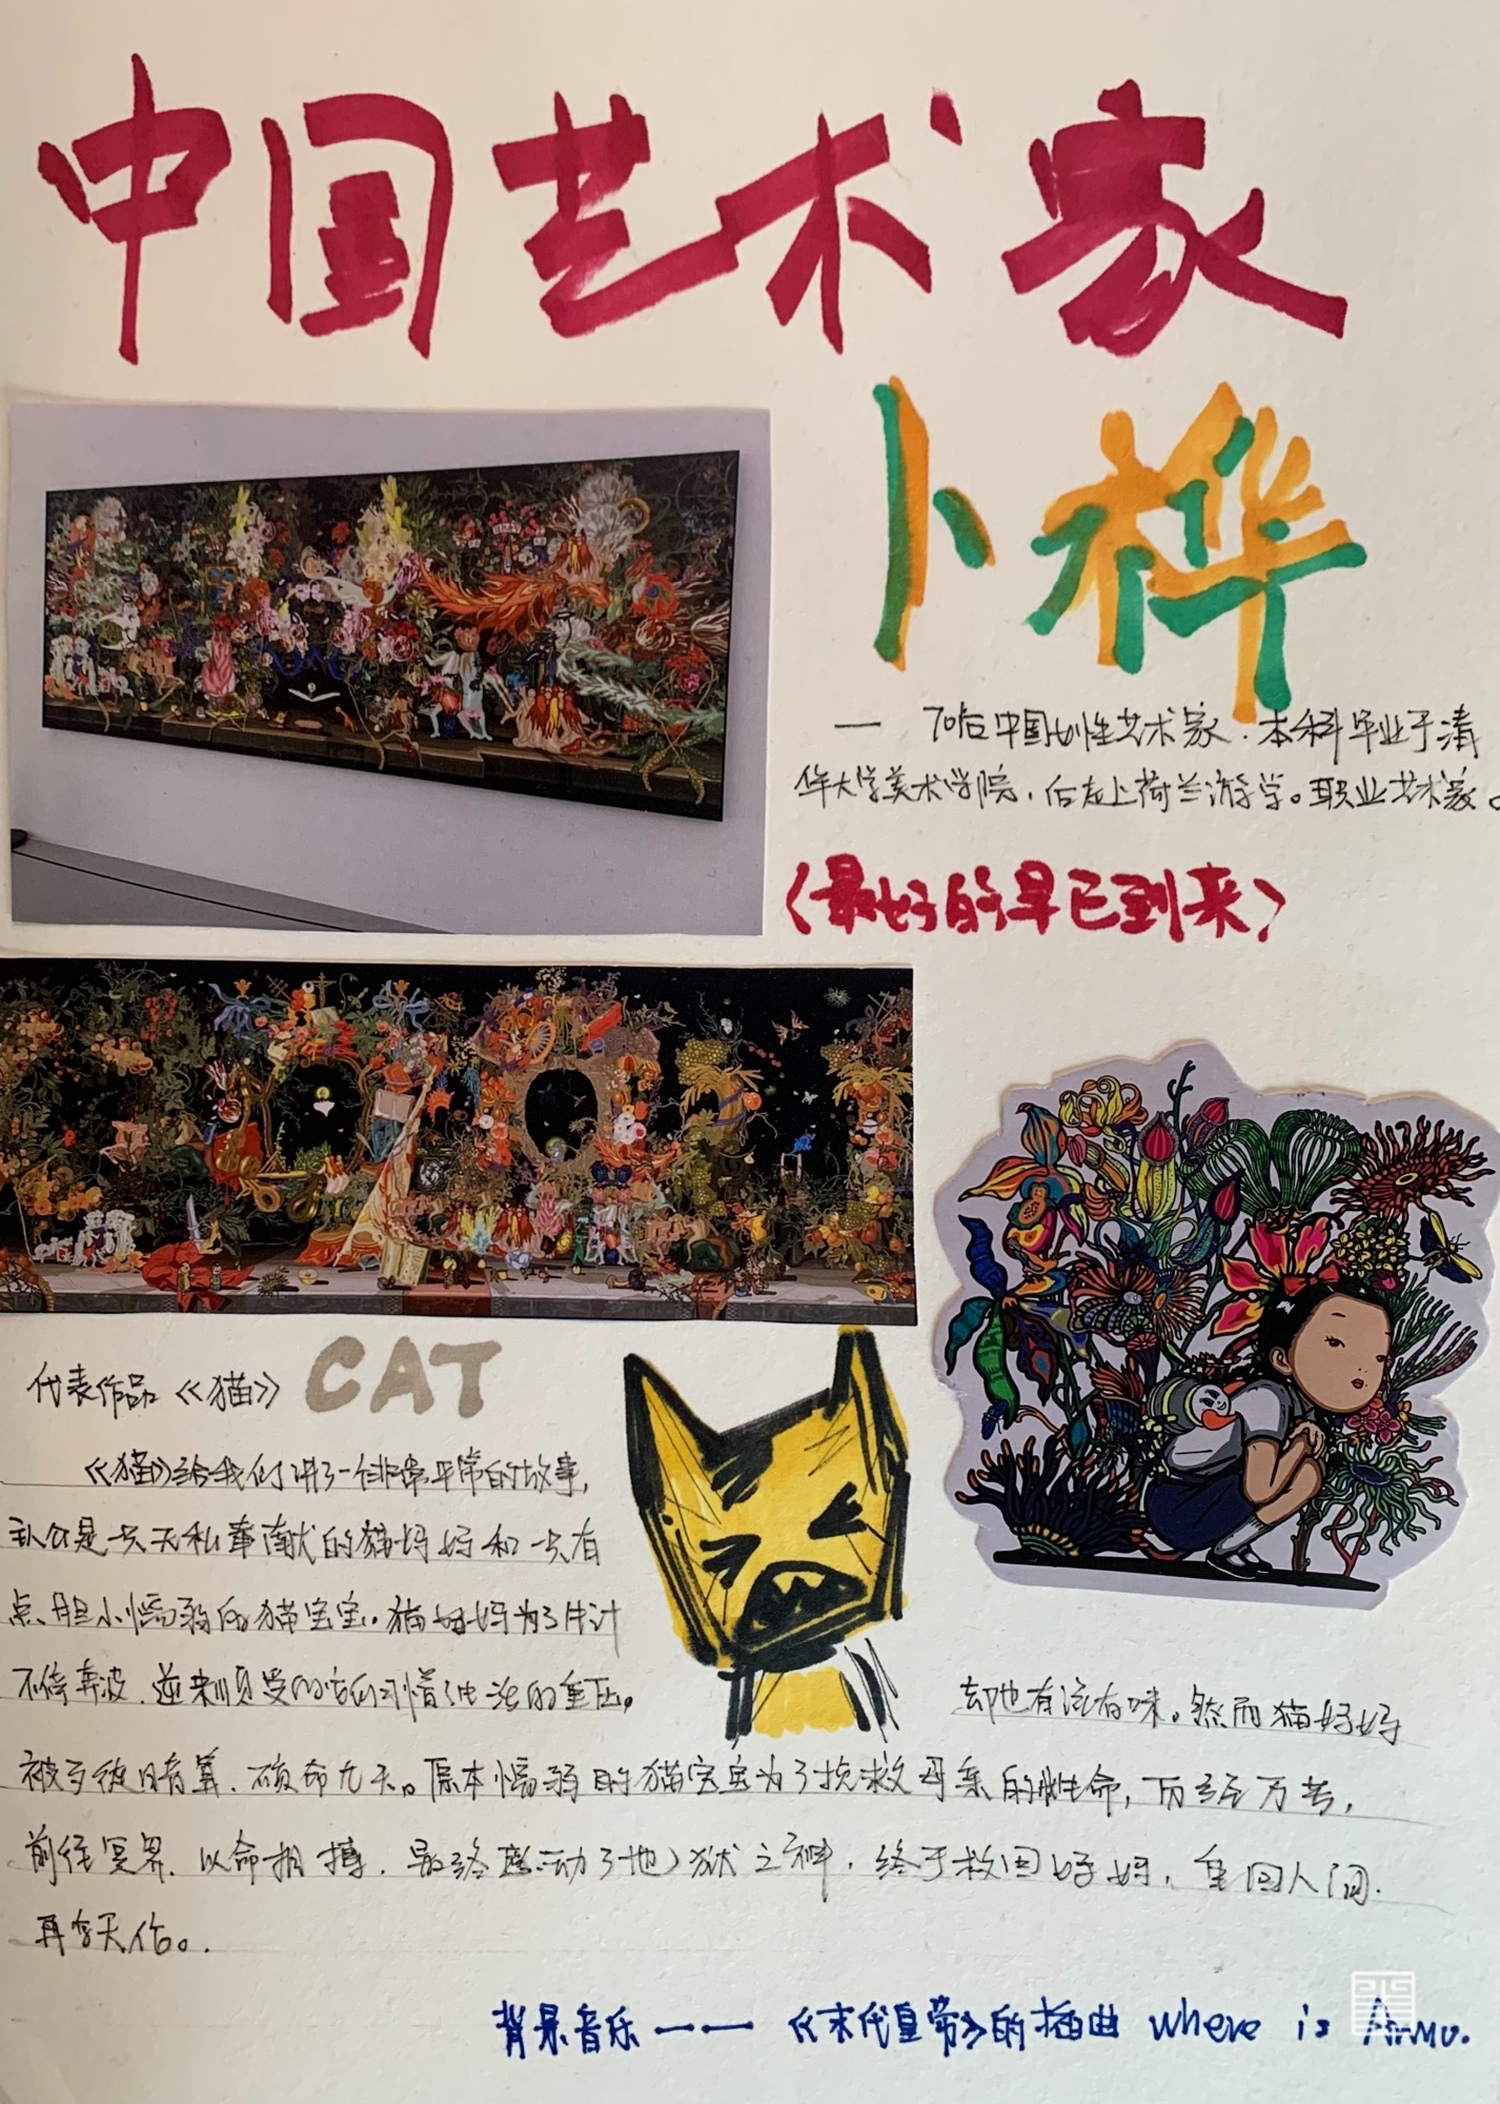 中国艺术家
卜桦
— 70后中国女性艺术家.本科毕业于清
华大学美术学院,后在上荷兰游学。职业艺术家。
〈最好的早已到来〉
代表作品《猫》 CAT
《猫》给我们讲了一个非常平常的故事,
主人公是一只无私奉献的猫妈妈和一只有
点胆小懦弱的猫宝宝。猫妈妈为了生计
不停奔波.逆来顺受的 生活的重压。
却也有滋有味。然而猫妈妈
被歹徒暗算.硕命九天。原本懦弱的猫宝宝为了挽救母亲的性命,历经万苦,
前往冥界.以命相搏.最终感动了地狱之神.终于救回妈妈,重回人间.
再 天伦。.
背景音乐——《末代皇帝》的插曲 where is Armo.